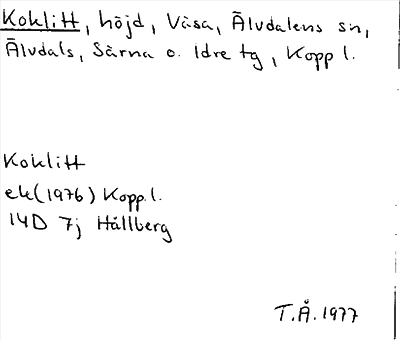 Koklitt, höjd, Väsa, Älvdalens sn,
Älvdals, Särna o. Idre tg, Kopp l.
Koklitt
ek (1976) Kopp. l.
14D 7j Hållberg
T.Å. 1977